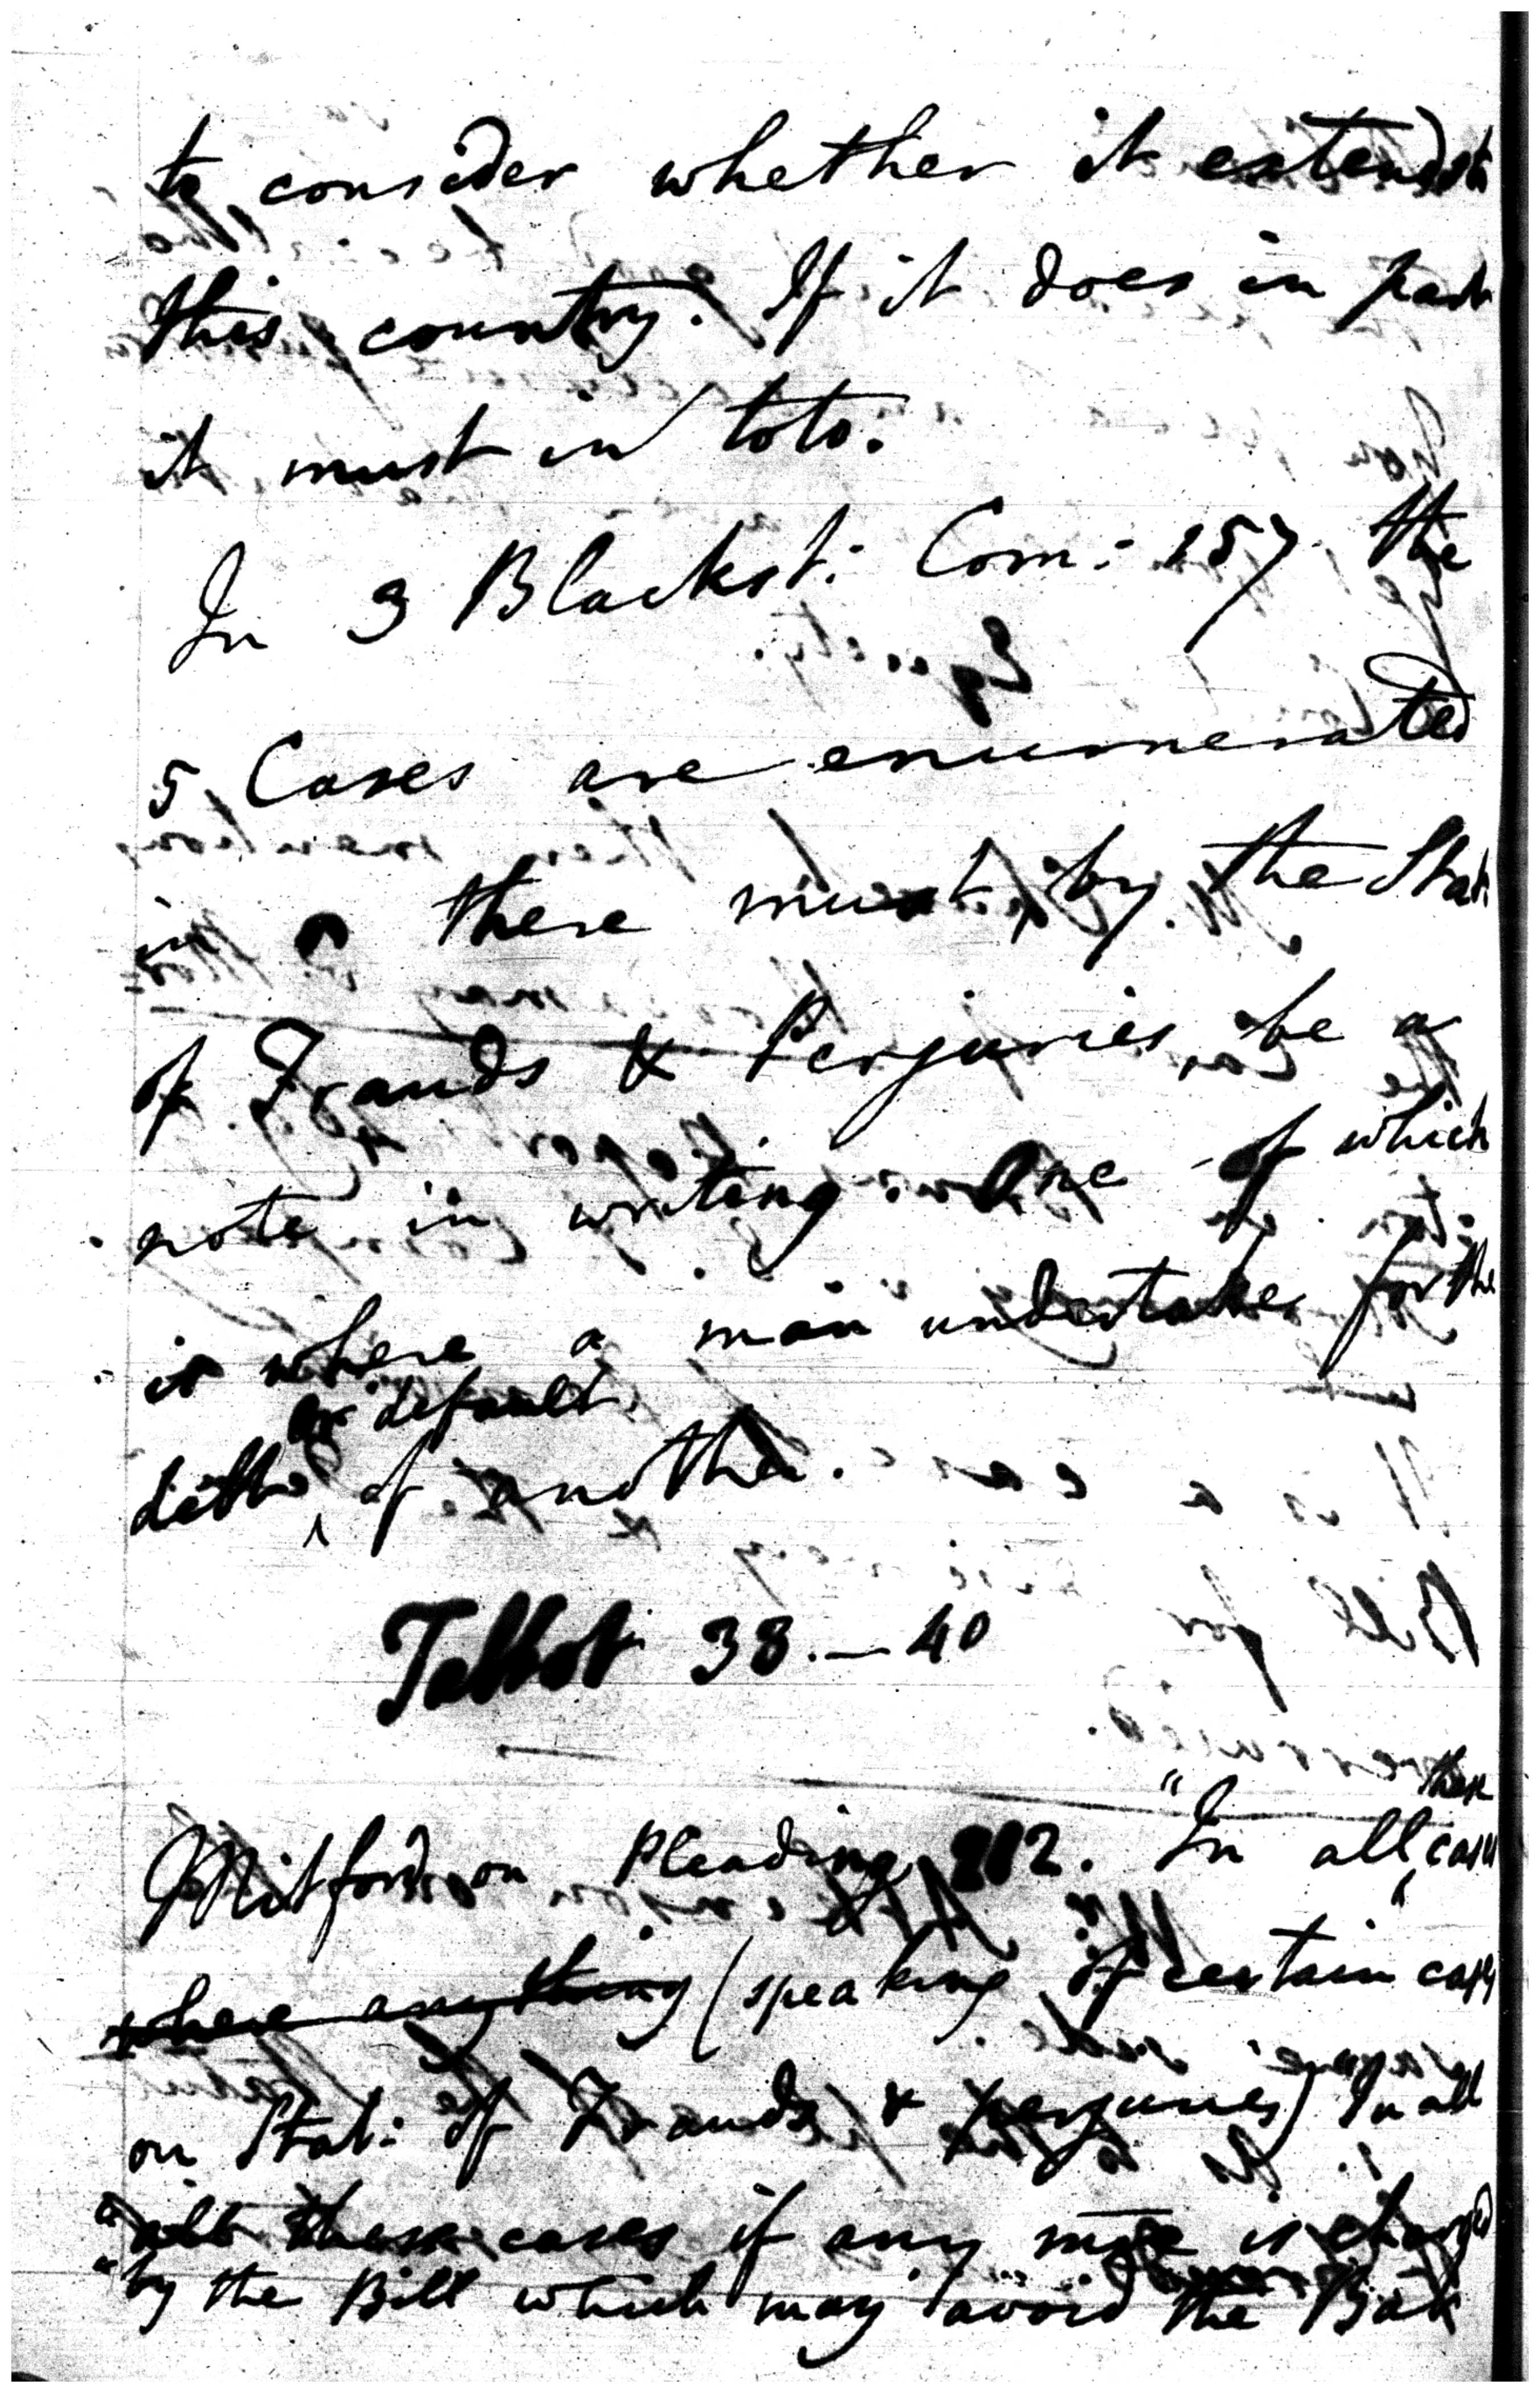 to consider whether it extends to
this country. If it does in part
it must in toto.
In 3 Blackst: Com: 157 the
5 Cases are enumerated
in there must by the Stat:
of Frauds & Perjuries, be a
note in writing. One of which
is where a man undertakes for the
or default
debt of another.
Talbot 38.—40
these
Mitford on Pleading 212. "In all cases
where any thing (speaking of certain cases
on Stat: of Frauds & perjuries) In all
"all these cases if any is charged
"by the Bill which may avoid the Bar